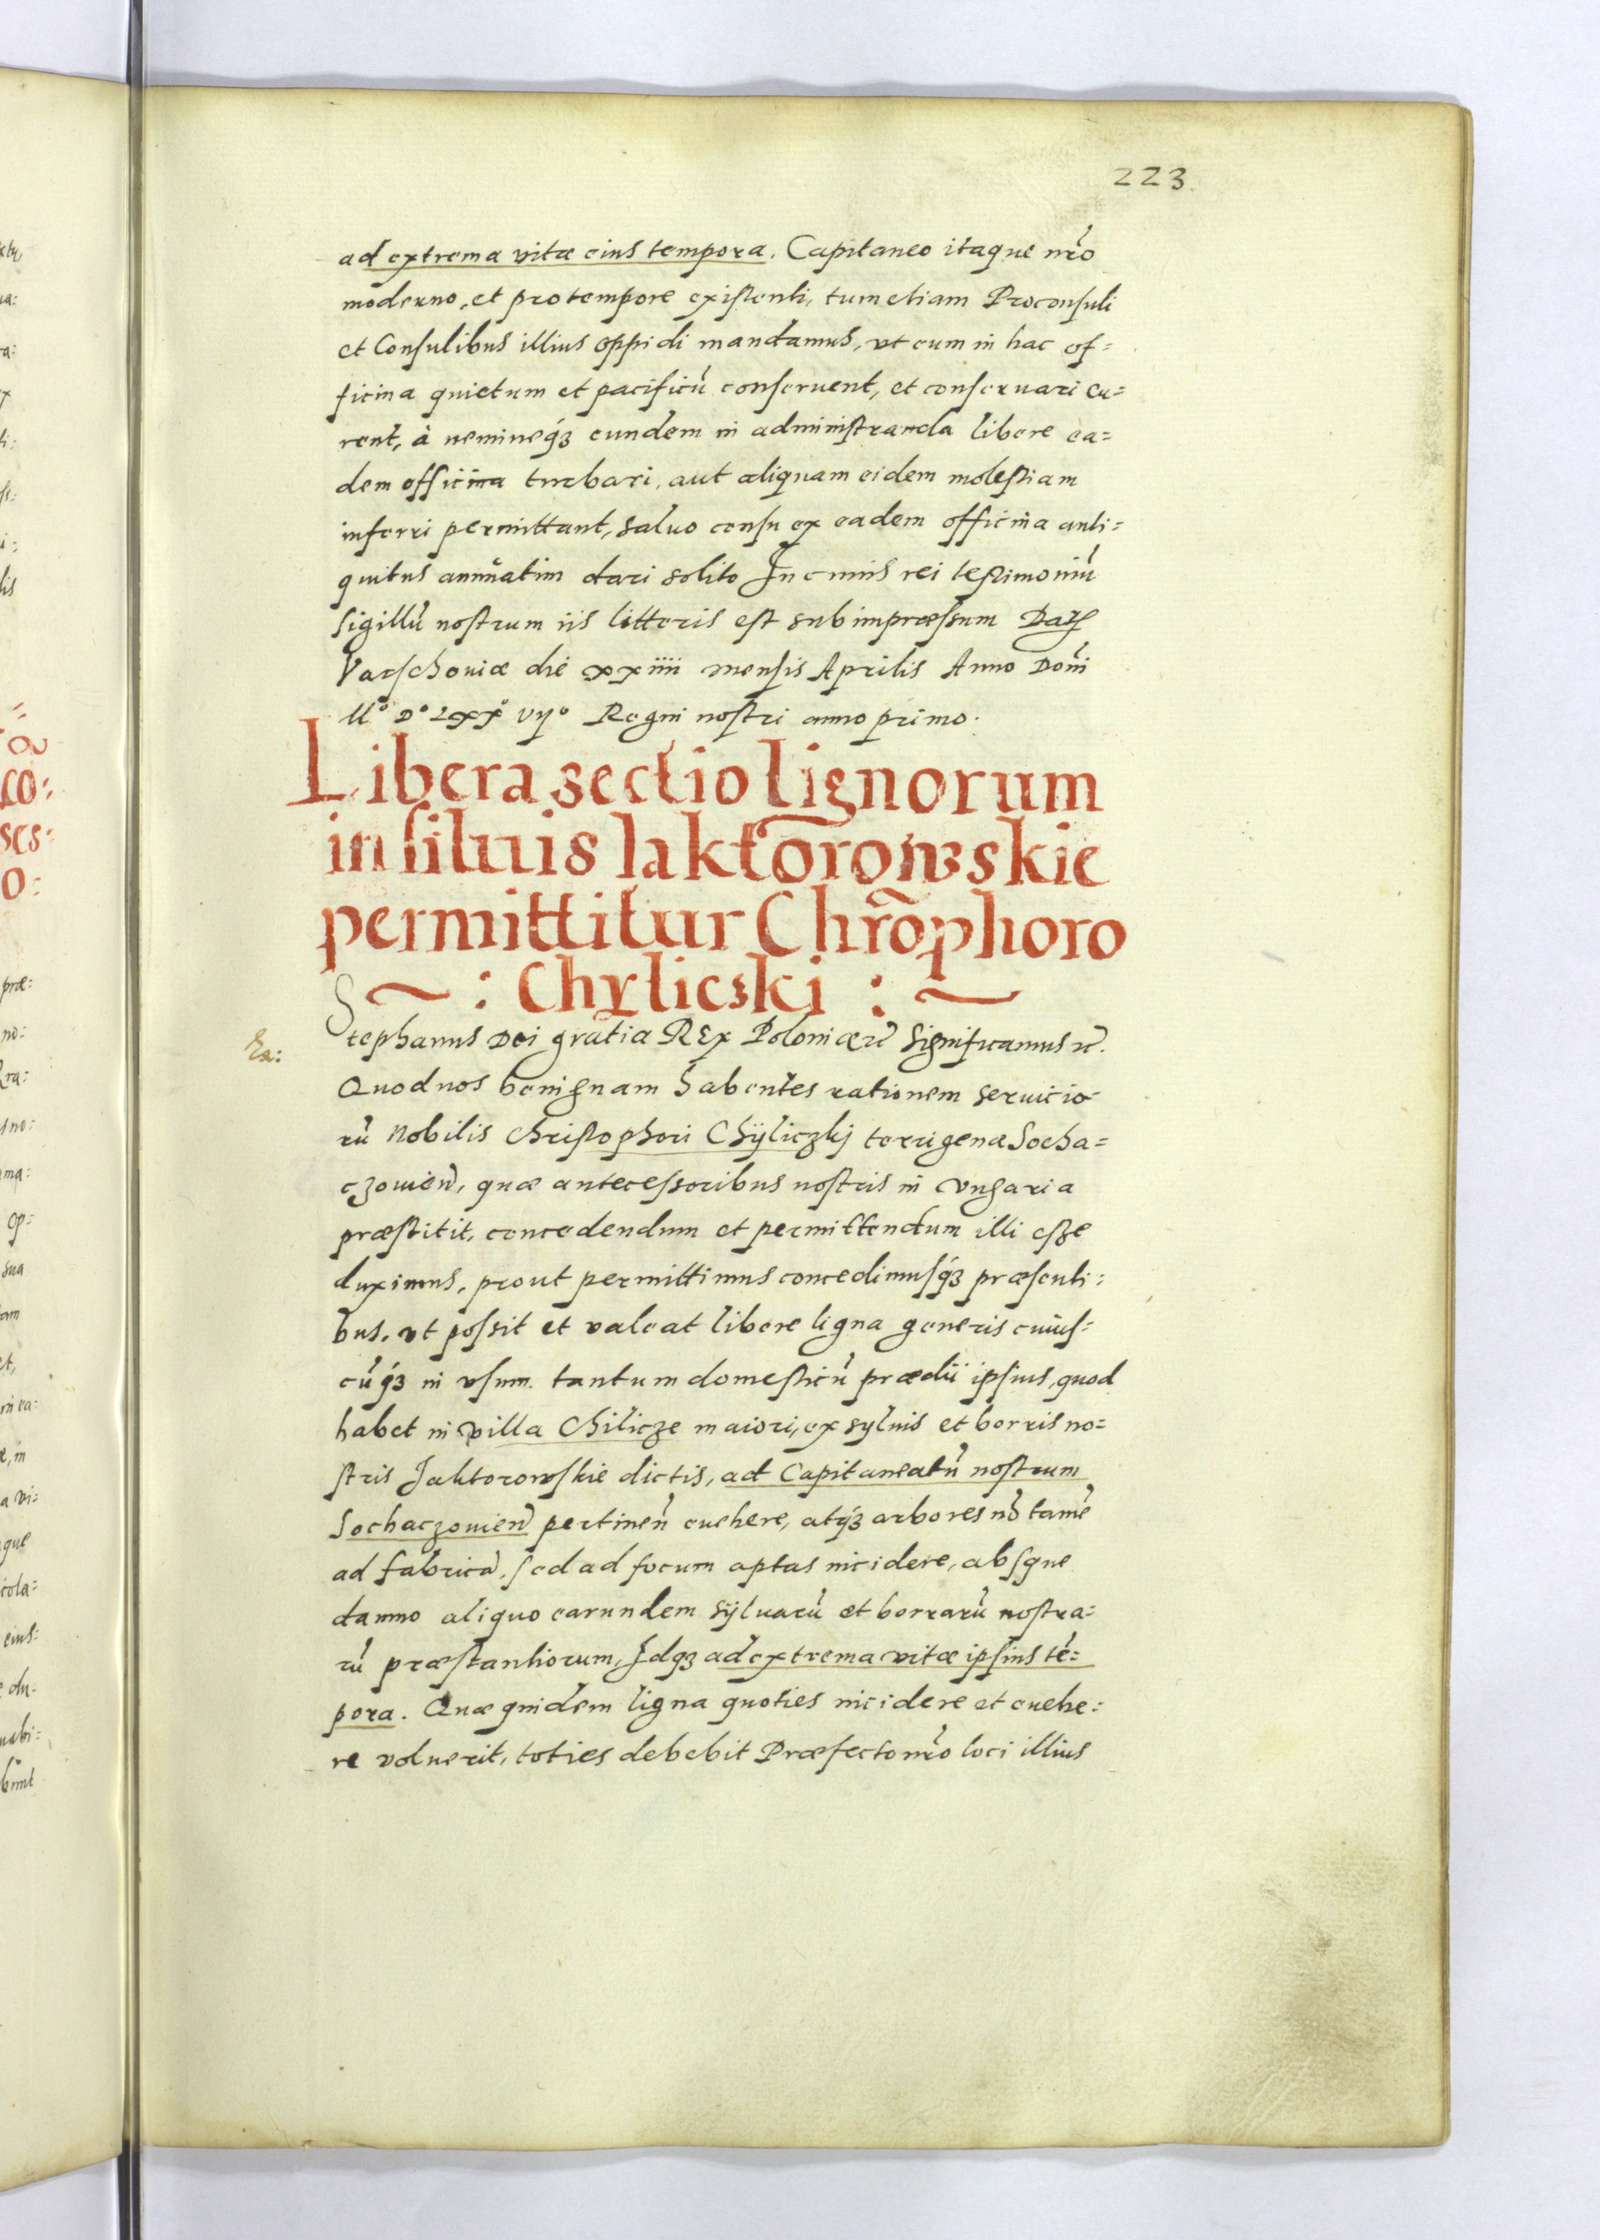 223.
ad extrema vitæ eius tempora. Capitaneo itaque nr̃o
moderno, et pro tempore existenti, tum etiam Proconsuli
et Consulibus illius oppidi mandamus, vt eum in hac of=
ficina quietum et pacificũ conseruent, et conseruari cu=
rent, à nemineq́ꝫ eundem in administranda libere ea=
dem officina turbari, aut aliquam eidem molestiam
inferri permittant, saluo censu ex eadem officina anti=
quitus annuatim dari solito In cuius rei testimoniũ
sigillũ nostrum iis litteris est subimpræssum Datꝭ
Varschouiæ die xxiiii mensis Aprilis Anno Doñi
Mº Dº LXXº vijº Regni nostri anno primo.
Libera sectio lignorum
in siluis Iaktorowskie
permittitur Chrõphoro
: Chylicski :
Stephanus Dei gratia REx Poloniæ ꝛc̃ Significamus ꝛc̃.
Quod nos benignam habentes rationem seruicio
rũ Nobilis Christophori Chÿliczkj terrigenæ Socha=
czouieñ, quæ antecessoribus nostris in Vngaria
præstitit, concedendum et permittendum illi esse
duximus, prout permittimus concedimusq́ꝫ præsenti:
bus, vt possit et valeat libere ligna generis cuius=
cũq́ꝫ in vsum tantum domesticũ prædii ipsius, quod
habet in villa Chilicze maiori, ex syluis et borris no=
stris Jaktorowskie dictis, ad Capitaneatũ nostrum
Sochaczouieñ pertineñ euehere, atq́ꝫ arbores nõ tamẽ
ad fabricã, sed ad focum aptas incidere, absque
damno aliquo earundem sÿluarũ et borrarũ nostra=
rũ præstantiorum, Idqꝫ ad extrema vitæ ipsius tẽ=
pora. Quæ quidem ligna quoties incidere et euehe:
re voluerit, toties debebit Præfecto nr̃o loci illius